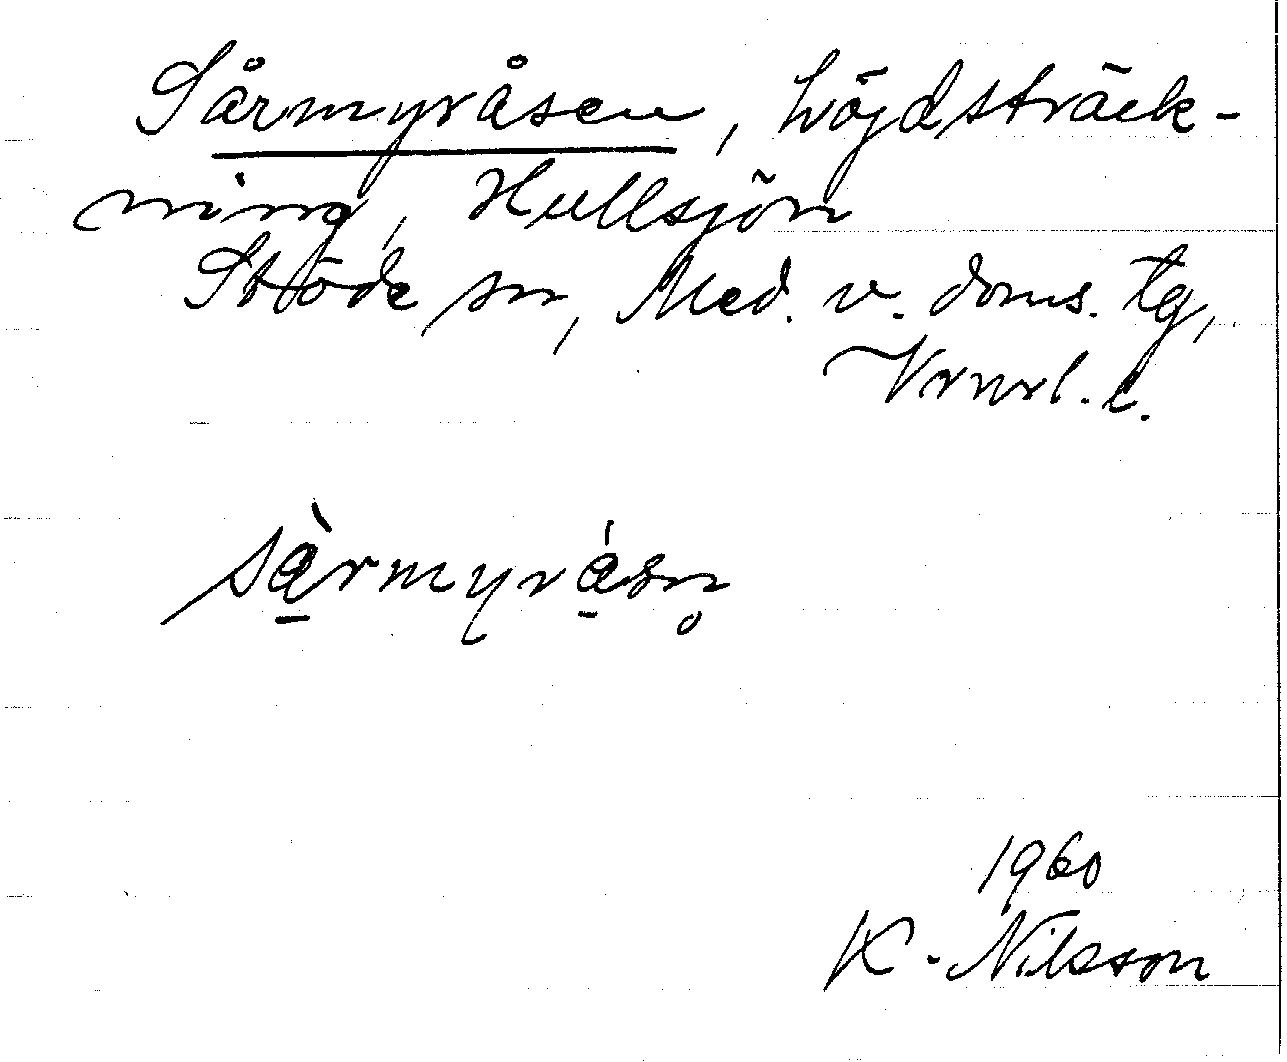 Sårmyråsen, höjdsträck-
ning, Hullsjön
Stöde sn, Med. v. doms. tg,
Vrnrl. l.
sàrmyrásn̥
1960
K. Nilsson